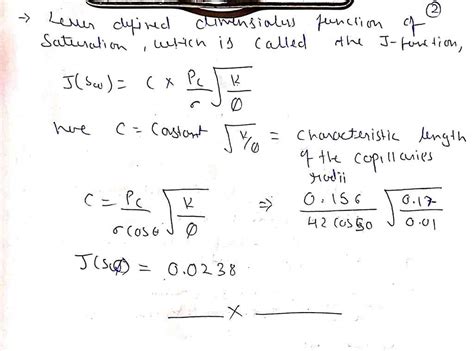 ②
→ Lever defined dimensionless function of
Saturation, which is called the J-function,
J(Sw) = C × Pc/σ √K/Ø
here C = Constant √K/Ø = Characteristic length
of the capillaries
radii
C = Pc/σcosθ √K/Ø ⇒ 0.156/42 cos50 √0.17/0.01
J(SØ) = 0.0238
___ × ___